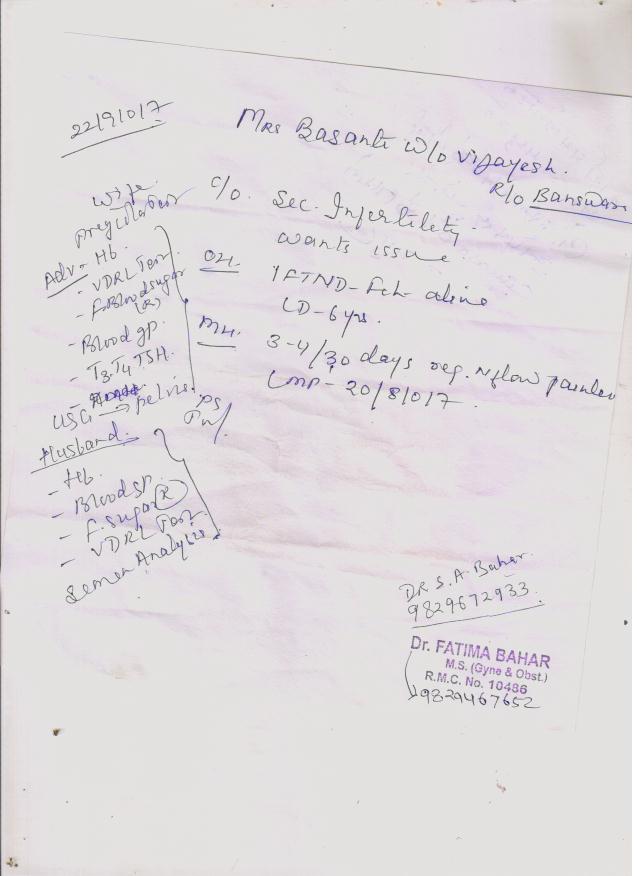 22/9/017
Mrs Basanti w/o Vijayesh.
R/o Banswara
c/o. Sec. Infertility
wants issue
OH. 1FTND - Fch alive
LD - 6 yrs.
MH. 3-4/30 days reg. N flow painless
LMP - 20/8/017.
Wife
pregcolor Test
Adv - Hb.
- VDRL Test
- F. Blood sugar
(R)
- Blood gp.
- T3. T4 TSH.
USG → pelvis.
PS
Husband.
- Hb.
- Blood gp.
- F. Sugar (R)
- VDRL Test.
Semen Analysis
DR S. A. Bahar.
9829672933.
Dr. FATIMA BAHAR
M.S. (Gyne & Obst.)
R.M.C. No. 10486
9829467652